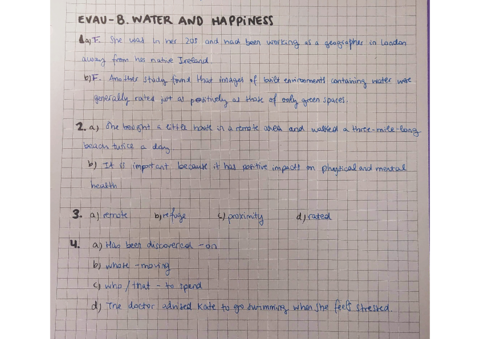 EVAU-B. WATER AND HAPPINESS
1.a) F. She was in her 20s and had been working as a geographer in London
away from her native Ireland.
b) F. Another study found that images of built environments containing water were
generally rated just as positively as those of only green spaces.
2. a) She bought a little house in a remote area and walked a three-mile-long
beach twice a day.
b) It is important because it has positive impacts on physical and mental
health
3. a) remote b) refuge c) proximity d) rated
4. a) Has been discovered - on
b) whose - moving
c) who / that - to spend
d) The doctor advised Kate to go swimming when she feels stressed.